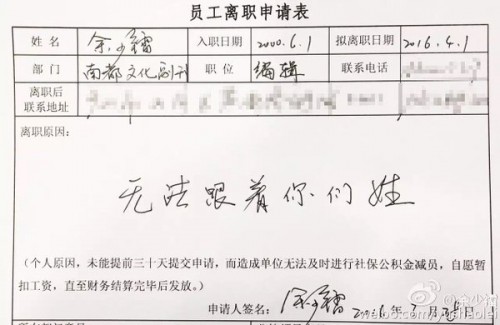 员工离职申请表
姓名 余少镭 入职日期 2000.6.1 拟离职日期 2016.4.1
部门 南都文化副刊 职位 编辑 联系电话
离职后
联系地址
离职原因:
无法跟着你们姓
(个人原因,未能提前三十天提交申请,而造成单位无法及时进行社保公积金减员,自愿暂
扣工资,直至财务结算完毕后发放。)
申请人签名: 余少镭 2016年3月